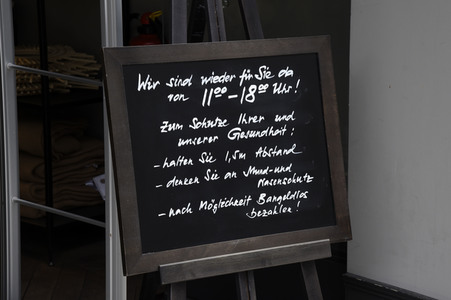 Wir sind wieder für Sie da
von 11⁰⁰-18⁰⁰ Uhr!
Zum Schutze Ihrer und
unserer Gesundheit:
- halten Sie 1,5m Abstand
- denken Sie an Mund-und
Nasenschutz
- nach Möglichkeit Bargeldlos
bezahlen!